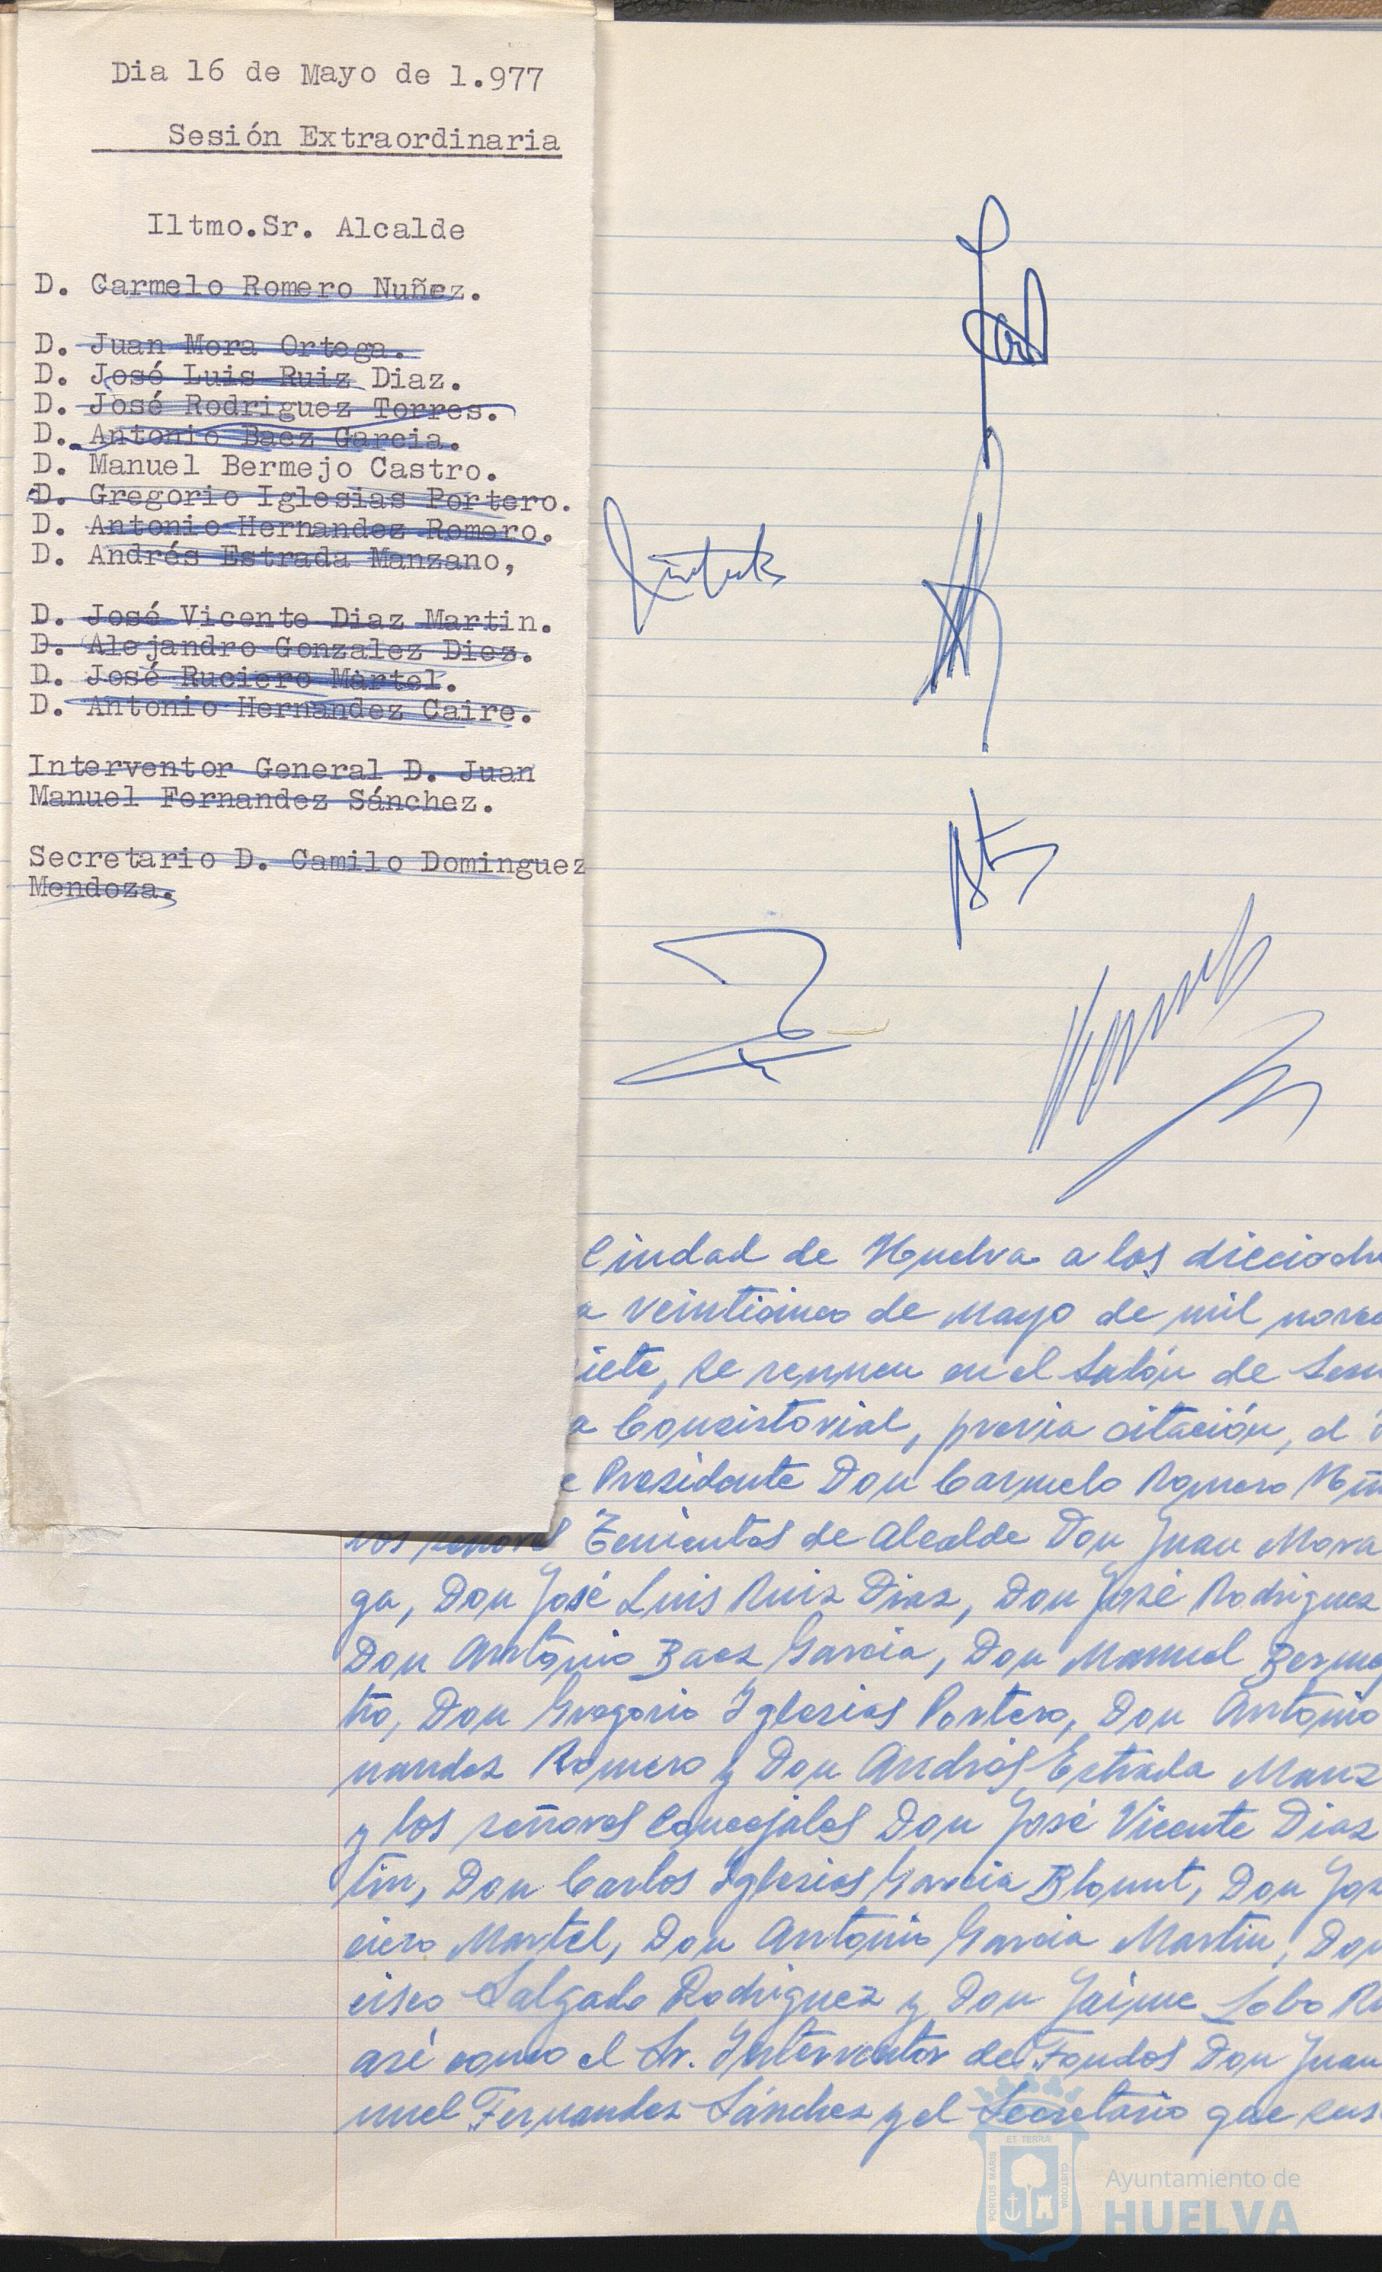 Dia 16 de Mayo de 1.977
Sesión Extraordinaria
Iltmo.Sr. Alcalde
D. Carmelo Romero Nuñez.
D. Juan Mora Ortega.
D. José Luis Ruiz Diaz.
D. José Rodriguez Torres.
D. Antonio Baez Garcia.
D. Manuel Bermejo Castro.
D. Gregorio Iglesias Portero.
D. Antonio Hernandez Romero.
D. Andrés Estrada Manzano,
D. José Vicente Diaz Martin.
D. Alejandro Gonzalez Diez.
D. José Ruciero Martel.
D. Antonio Hernandez Caire.
Interventor General D. Juan
Manuel Fernandez Sánchez.
Secretario D. Camilo Dominguez
Mendoza.
Ciudad de Huelva a los diecioch
a veinticinco de Mayo de mil novec
iete, se reunen en el Salón de Sesi
a Consistorial, previa citación, el
e Presidente Don Carmelo Romero Nuñ
los señores Tenientes de Alcalde Don Juan Mora
ga, Don José Luis Ruiz Diaz, Don José Rodriguez
Don Antonio Baez Garcia, Don Manuel Bermej
tro, Don Gregorio Iglesias Portero, Don Antonio
nandez Romero y Don Andrés Estrada Manz
y los señores Concejales Don José Vicente Diaz
tin, Don Carlos Iglesias Garcia Blount, Don Jos
ciero Martel, Don Antonio Garcia Martin, Don
cisco Salgado Rodriguez y Don Jaime Lobo Ru
asi como el Sr. Interventor de Fondos Don Juan
nuel Fernandez Sánchez y el Secretario que sus
PORTUS MARIS
ET TERRÆ
CUSTODIA
Ayuntamiento de
HUELVA